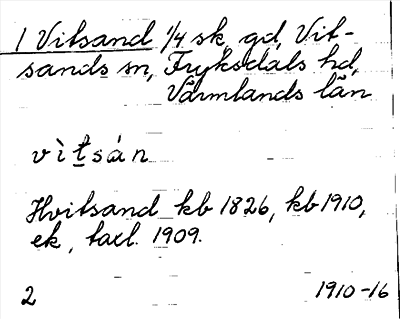 1 Vitsand 1/4 sk, gd, Vit-
sands sn, Fryksdals hd,
Värmlands län
vìt̠sán
Hvitsand kb 1826, kb 1910,
ek, taxl. 1909.
2 1910-16